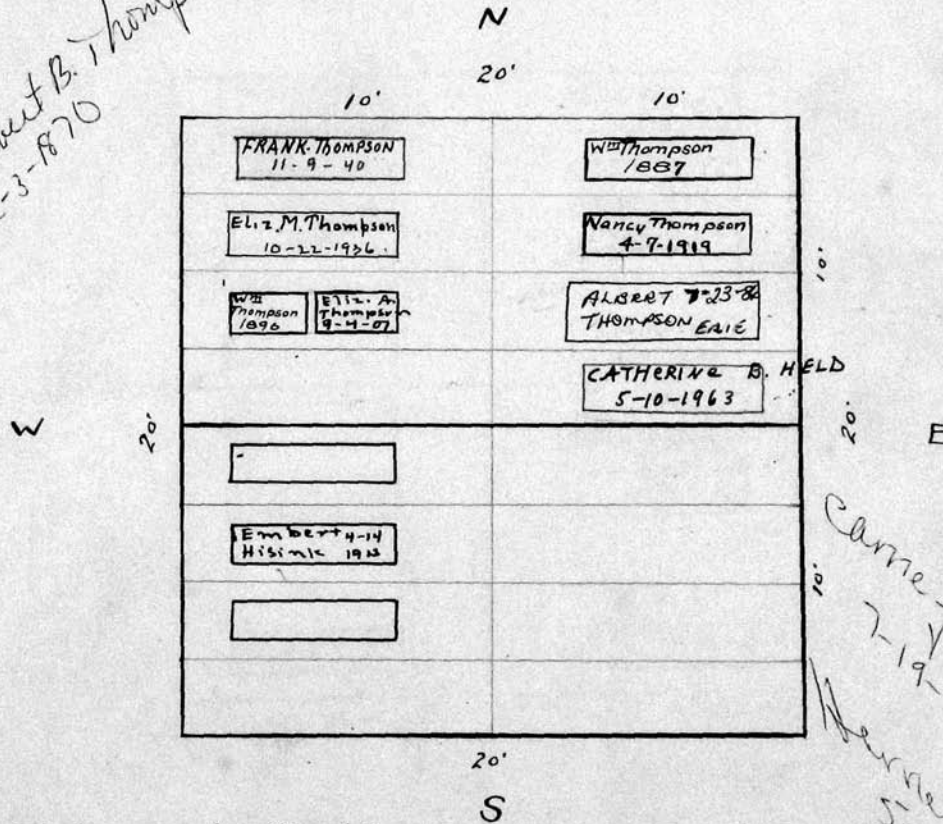 N
B. Thomp
-3-1870
20'
10' 10'
FRANK. THOMPSON
11-9-40
Wm Thompson
1887
Eliz. M. Thompson
10-22-1936.
Nancy Thompson
4-7-1919
10'
Wm
Thompson
1896
Eliz. A.
Thompson
9-4-07
ALBERT -23-
THOMPSON ERIE
CATHERINE B. HELD
5-10-1963
W
20'
20'
E
Embert 4-14
Hisink
10'
Carrie
7-19-
20'
S